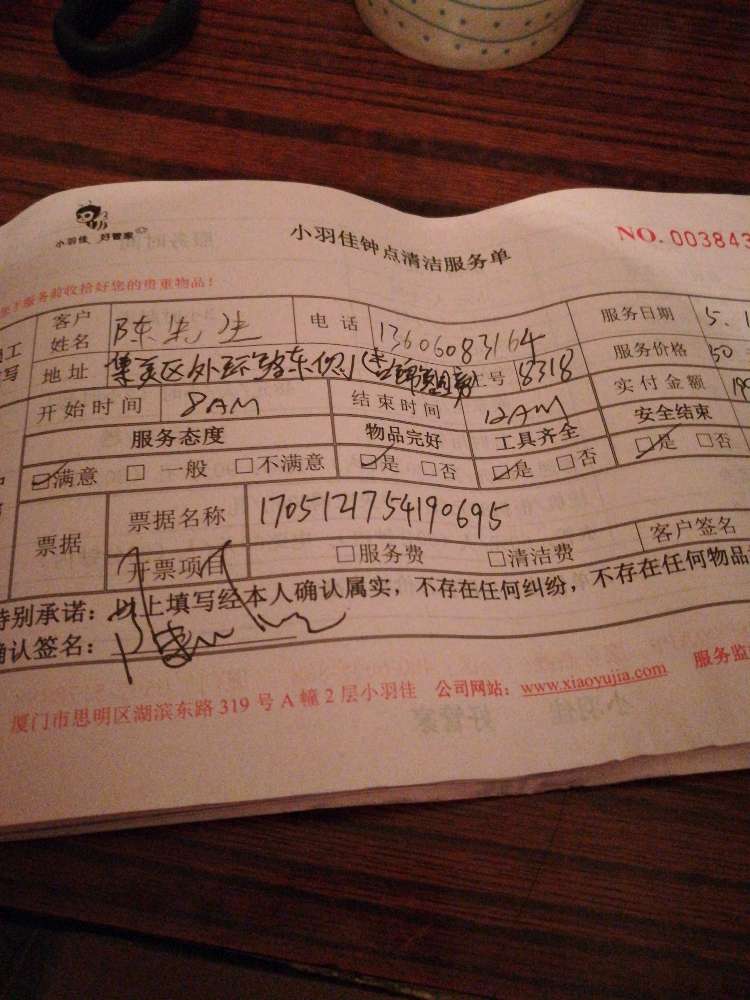 小羽佳 好管家
小羽佳钟点清洁服务单
NO. 003843
服务前收拾好您的贵重物品!
客户姓名 陈先生 电话 13606083164 服务日期 5.1
地址 集美区外环路东侧 工号 8318 服务价格 50
开始时间 8AM 结束时间 12AM 实付金额 190
服务态度 物品完好 工具齐全 安全结束
☑满意 □一般 □不满意 ☑是 □否 ☑是 □否 ☑是 □否
票据 票据名称 1705121754190695
开票项目 □服务费 □清洁费 客户签名
特别承诺:以上填写经本人确认属实,不存在任何纠纷,不存在任何物品
确认签名:
厦门市思明区湖滨东路 319 号 A 幢 2 层小羽佳 公司网站:www.xiaoyujia.com 服务监